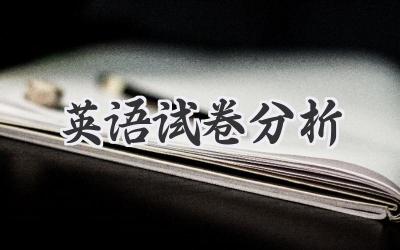 英语试卷分析